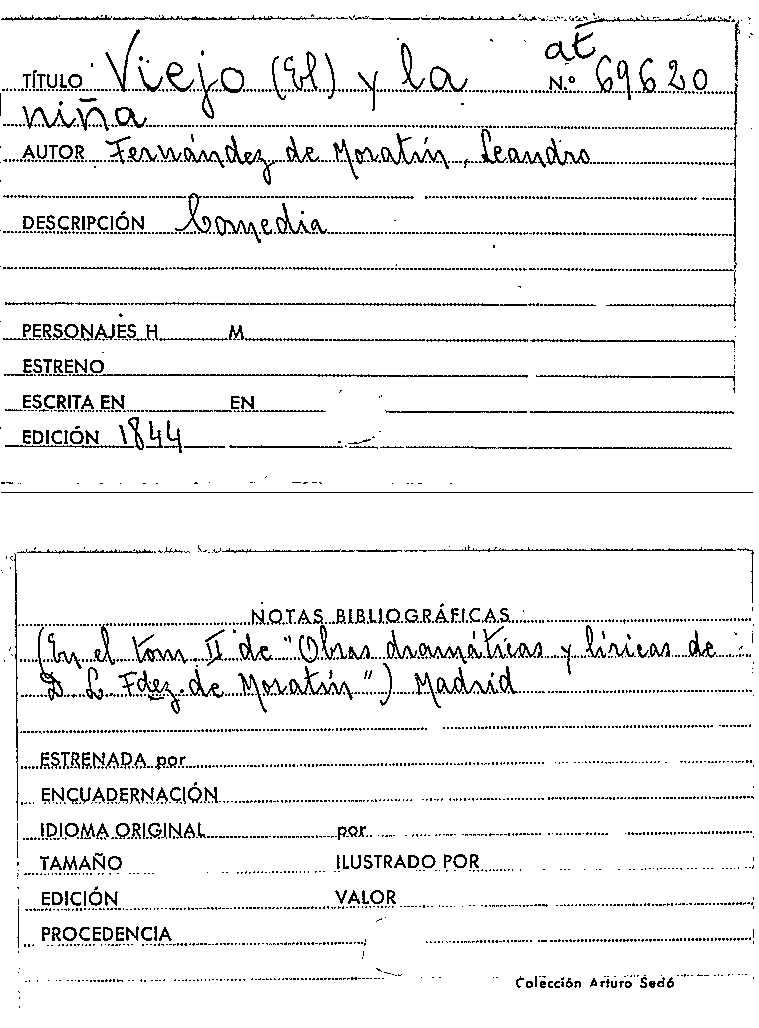 TÍTULO Viejo (El) y la
aE
N.º 69620
niña
AUTOR Fernández de Moratín, Leandro
DESCRIPCIÓN Comedia
PERSONAJES H M
ESTRENO
ESCRITA EN EN
EDICIÓN 1844
NOTAS BIBLIOGRÁFICAS
(En el tom II de "Obras dramáticas y líricas de
D L Fdez. de Moratín") Madrid
ESTRENADA por
ENCUADERNACIÓN
IDIOMA ORIGINAL por
TAMAÑO ILUSTRADO POR
EDICIÓN VALOR
PROCEDENCIA
Colección Arturo Sedó